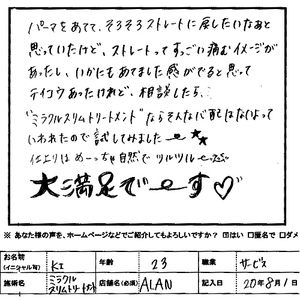 パーマをあてて、そろそろストレートに戻したいなぁと
思っていたけど、ストレートってすっごい痛むイメージが
あったし、いかにもあてました感がでると思って
テイコウあったけれど、相談したら、
"ミラクルスリムトリートメント"ならそんな心配はないよって
いわれたので試してみましたー★★
仕上りはめーっちゃ自然でツルツルー
大満足でーす♡
※ あなた様の声を、ホームページなどでご紹介してもよろしいですか？ ☑はい □匿名で □ダメ
お名前(イニシャル可) K.I 年齢 23 職業 サービス
施術名 ミラクルスリムトリートメント 店舗名(必須) ALAN 記入日 20年8月1日